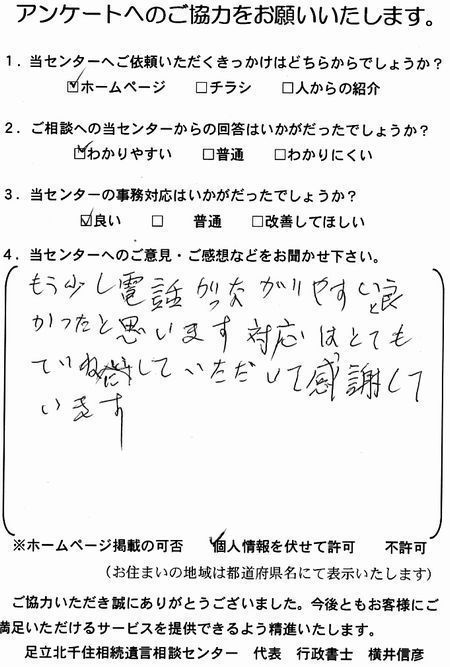 アンケートへのご協力をお願いいたします。
1．当センターへご依頼いただくきっかけはどちらからでしょうか？
☑ホームページ □チラシ □人からの紹介
2．ご相談への当センターからの回答はいかがだったでしょうか？
☑わかりやすい □普通 □わかりにくい
3．当センターの事務対応はいかがだったでしょうか？
☑良い □ 普通 □改善してほしい
4．当センターへのご意見・ご感想などをお聞かせ下さい。
もう少し電話がつながりやすいと良
かったと思います 対応はとても
ていねいにしていただいて感謝して
います
※ホームページ掲載の可否 ✓個人情報を伏せて許可 不許可
（お住まいの地域は都道府県名にて表示いたします）
ご協力いただき誠にありがとうございました。今後ともお客様にご
満足いただけるサービスを提供できるよう精進いたします。
足立北千住相続遺言相談センター 代表 行政書士 横井信彦